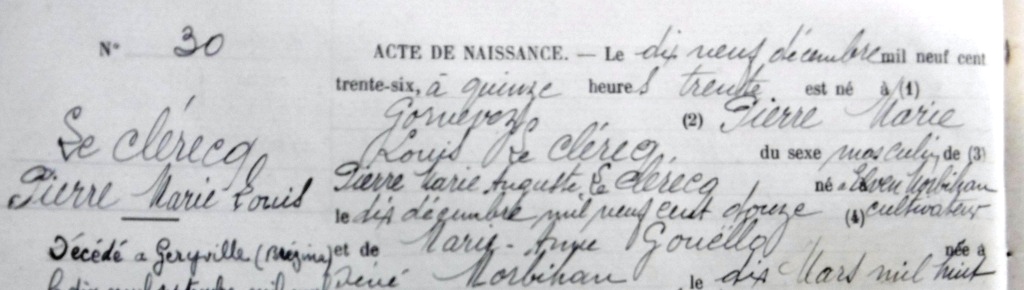 N° 30
Le clérecq
Pierre Marie Louis
Décédé a Geryville (Brézina)
ACTE DE NAISSANCE. — Le dix neuf décembre mil neuf cent
trente-six, à quinze heures trente est né à (1)
(2) Pierre Marie
Louis Le clérecq du sexe masculin de (3)
Pierre Marie Auguste Le clérecq né à Elven Morbihan
le dix décembre mil neuf cent douze (4) cultivateur
et de Marie-Anne Gouëllo née à
Morbihan, le dix Mars mil huit